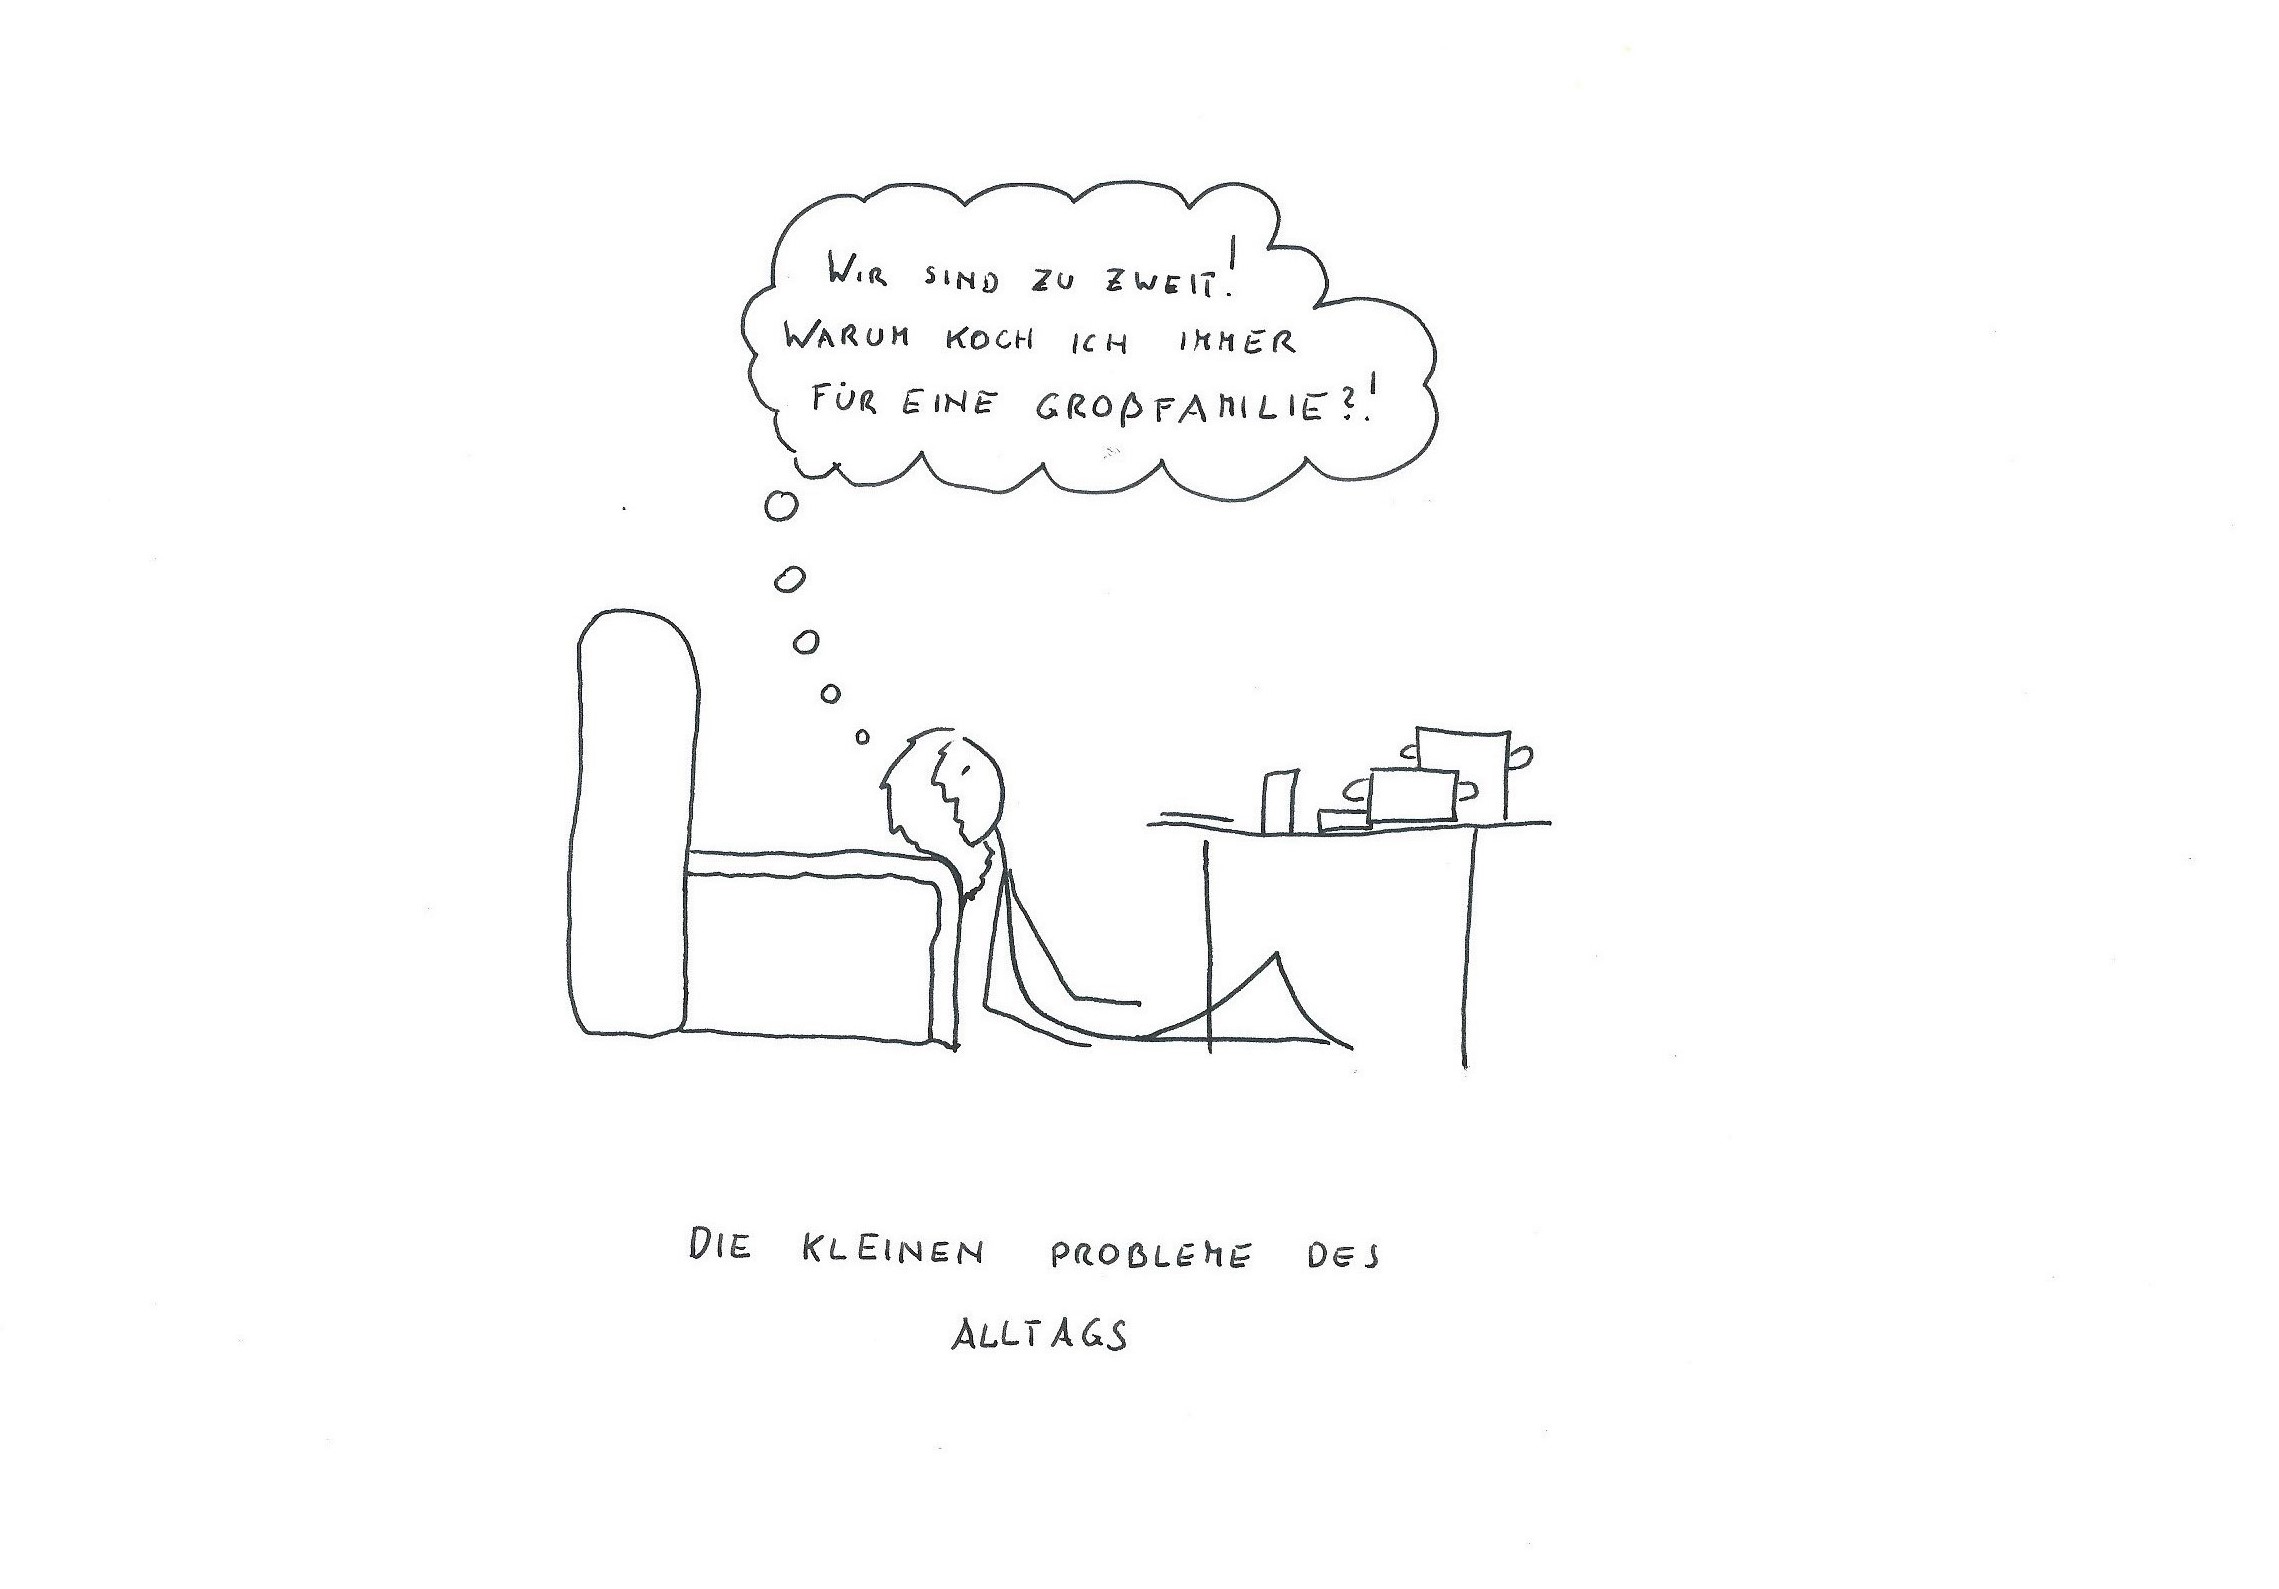 WIR SIND ZU ZWEIT!
WARUM KOCH ICH IMMER
FÜR EINE GROßFAMILIE?!
DIE KLEINEN PROBLEME DES
ALLTAGS